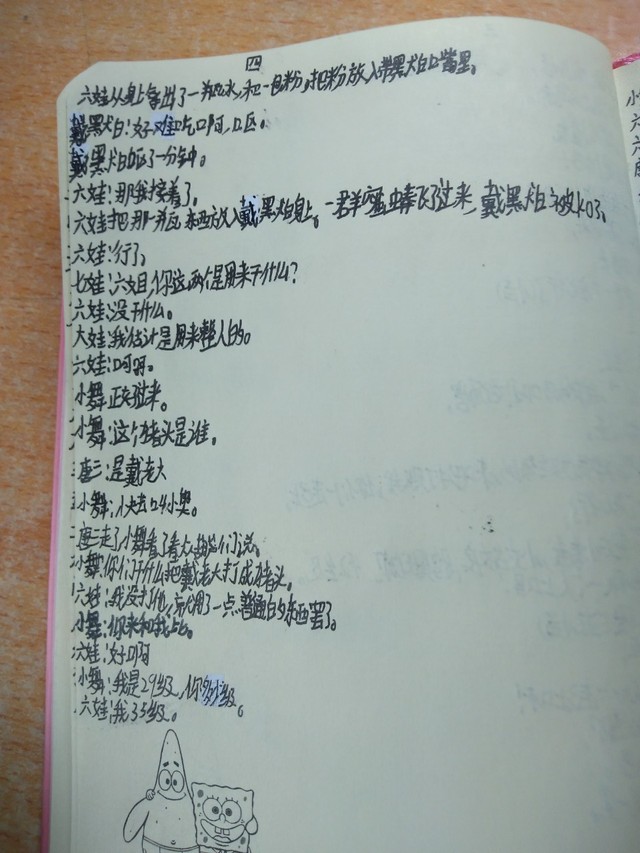 四
六娃从身上拿出了一瓶水,和一包粉,把粉放入戴黑犬白口嘴里。
戴黑犬白:好难吃口阿,口区。
戴黑犬白口区了一分钟。
六娃:那我接着了。
六娃把那一瓶东西放入戴黑犬白身上。一群蜜蜂飞了过来,戴黑犬白被KO了。
六娃:行了。
七娃:六姐,你这两个是用来干什么?
六娃:没干什么。
大娃:我估计是用来整人的。
六娃:呵呵。
小舞正走过来。
小舞:这个猪头是谁。
唐三:是戴老大
小舞:
唐三走了小舞看了看大娃他们说。
小舞:你们干什么把戴老大打成猪头。
六娃:我没打他,就用了一点普通的东西罢了。
小舞:你来和我比。
六娃:好口阿
小舞:我是29级,你多少级。
六娃:我35级。